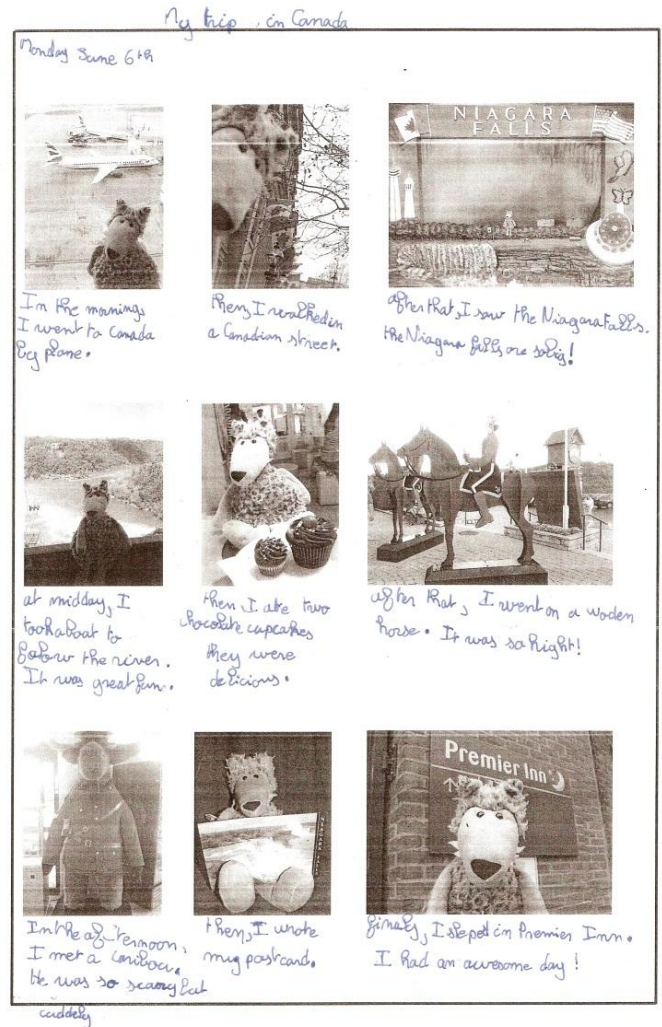 My trip in Canada
Monday June 6th
NIAGARA
FALLS
In the morning,
I went to Canada
by plane.
then, I walked in
a Canadian street.
after that, I saw the Niagara Falls.
the Niagara falls are so big!
at midday, I
took a boat to
folow the river.
It was great fun.
then, I ate two
chocolate cupcakes
they were
delicious.
after that, I went on a wooden
horse. It was so hight!
Premier Inn
In the afternoon,
I met a caribou.
He was so scary but
cuddely
then, I wrote
my postcard.
finaly, I sleped in Premier Inn.
I had an awesome day!